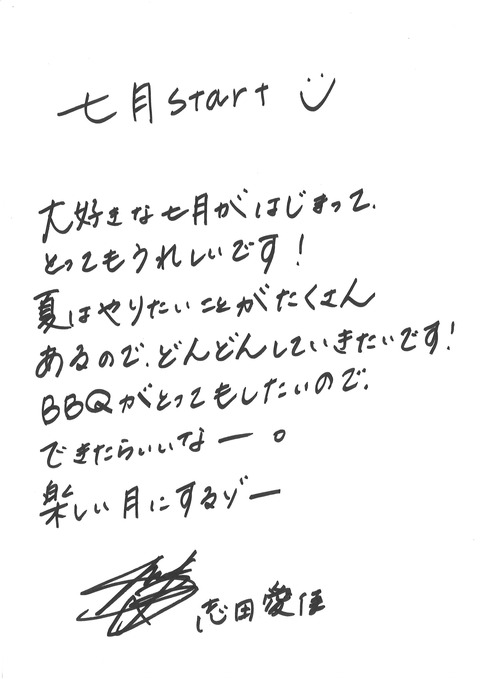 七月start
大好きな七月がはじまって、
とってもうれしいです!
夏はやりたいことがたくさん
あるので、どんどんしていきたいです!
BBQがとってもしたいので、
できたらいいなー。
楽しい月にするゾー
志田愛佳